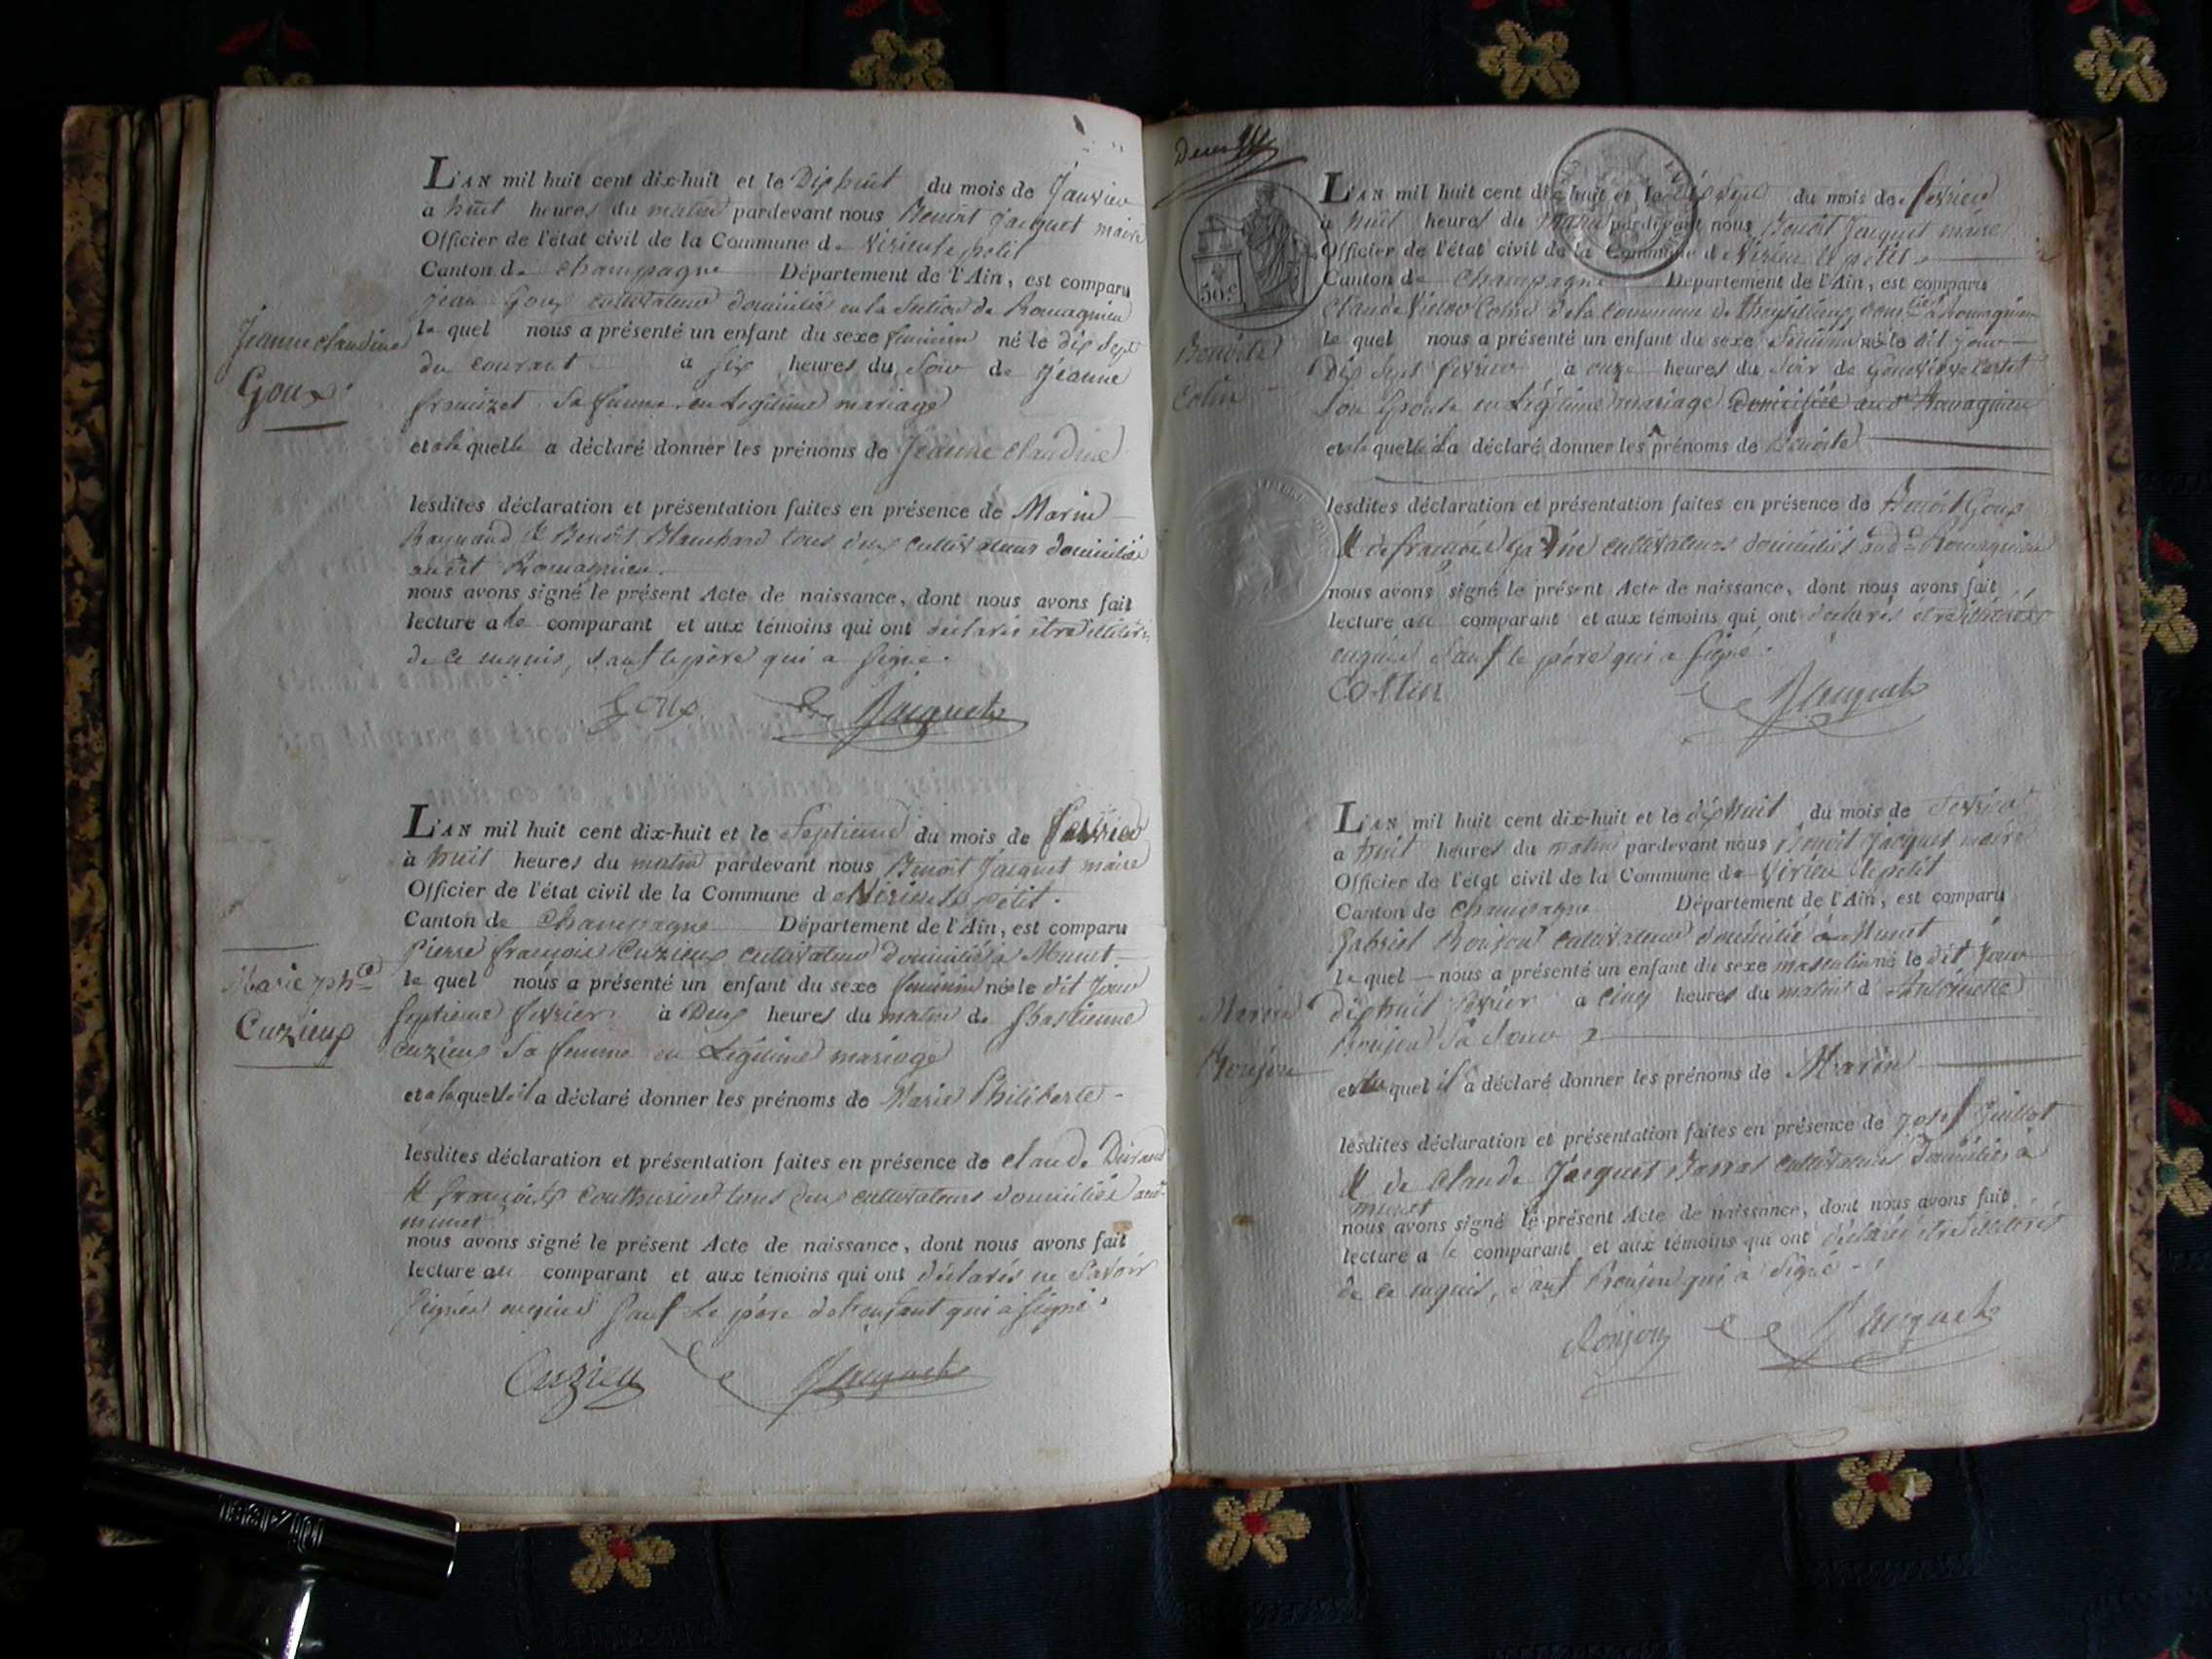 L'AN mil huit cent dix-huit et le Dix huit du mois de Janvier
a huit heures du matin pardevant nous Benoit Jacquet maire
Officier de l'état civil de la Commune de Virieu le petit
Canton de Champagne Département de l'Ain, est comparu
Jean Goux cultivateur domicilié en la Section de Romagnieu
le quel nous a présenté un enfant du sexe feminin né le dix Sept
du courant a six heures du Soir de Jeanne
Sa femme en Légitime mariage
et a la quelle a déclaré donner les prénoms de Jeanne Claudine
lesdites déclaration et présentation faites en présence de Marin
Raynaud & Benoît Blanchard tous deux cultivateurs domiciliés
au dit Romagnieu.
nous avons signé le présent Acte de naissance, dont nous avons fait
lecture a le comparant et aux témoins qui ont déclarés être
de ce enquis, sauf le père qui a signé.
Goux Jacquet
Jeanne claudine
Goux
L'AN mil huit cent dix-huit et le Septieme du mois de fevrier
à huit heures du matin pardevant nous Benoit Jacquet maire
Officier de l'état civil de la Commune de Virieu le petit.
Canton de Champagne Département de l'Ain, est comparu
Pierre françois Cuzieux cultivateur domicilié à Munet
le quel nous a présenté un enfant du sexe feminin née le dit Jour
Septieme fevrier à Deux heures du matin de Sbastienne
Cuzieux Sa femme en Légitime mariage
et a la quelle il a déclaré donner les prénoms de Marie Philiberte
lesdites déclaration et présentation faites en présence de Claude Durand
& françois tous deux cultivateurs domiciliés aud.
munet
nous avons signé le présent Acte de naissance, dont nous avons fait
lecture au comparant et aux témoins qui ont déclarés ne Savoir
Signer enquis Sauf le père de l'enfant qui a signé.
Cuzieu Jacquet
Marie
Cuzieux
L'AN mil huit cent dix-huit et le dix Sept du mois de fevrier
à huit heures du matin pardevant nous Benoit Jacquet maire
Officier de l'état civil de la Commune de Virieu le petit
Canton de Champagne Département de l'Ain, est comparu
Claude Colin de la Commune de
le quel nous a présenté un enfant du sexe feminin né le dit jour
Dix Sept fevrier à onze heures du Soir de
Son épouse en Légitime mariage
et a la quelle il a déclaré donner les prénoms de Benoite
lesdites déclaration et présentation faites en présence de Benoit Goux
& de françois cultivateurs domiciliés aud. Romagnieu
nous avons signé le présent Acte de naissance, dont nous avons fait
lecture au comparant et aux témoins qui ont déclarés
enquis Sauf le père qui a signé.
Collin Jacquet
50 c
Benoite
Colin
L'AN mil huit cent dix-huit et le dix huit du mois de fevrier
a huit heures du matin pardevant nous Benoit Jacquet maire
Officier de l'état civil de la Commune de Virieu le petit
Canton de Champagne Département de l'Ain, est comparu
Gabriel Roujou cultivateur domicilié à Munet
le quel nous a présenté un enfant du sexe masculin né le dit Jour
dix huit fevrier a Cinq heures du matin d'Antoinette
Roujou Sa Soeur
et au quel il a déclaré donner les prénoms de Marin
lesdites déclaration et présentation faites en présence de Josef Juillet
& de Claude Jacquet cultivateurs domiciliés à
munet
nous avons signé le présent Acte de naissance, dont nous avons fait
lecture a le comparant et aux témoins qui ont déclarés être illiterés
de ce enquis, sauf Roujou qui a Signé
Roujou Jacquet
Marin
Roujou